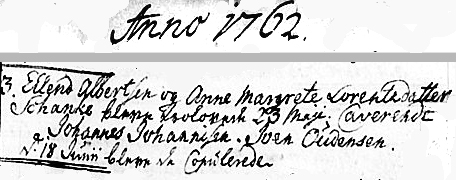 Anno 1762.
3. Ellend Albertsen og Anne Margrete Lorentsdatter
Schanke bleve trolovede 23 Maji. Caverendt
Johannes Johannsen. Iven Eidensen.
d. 18 Junii bleve de Copulerede